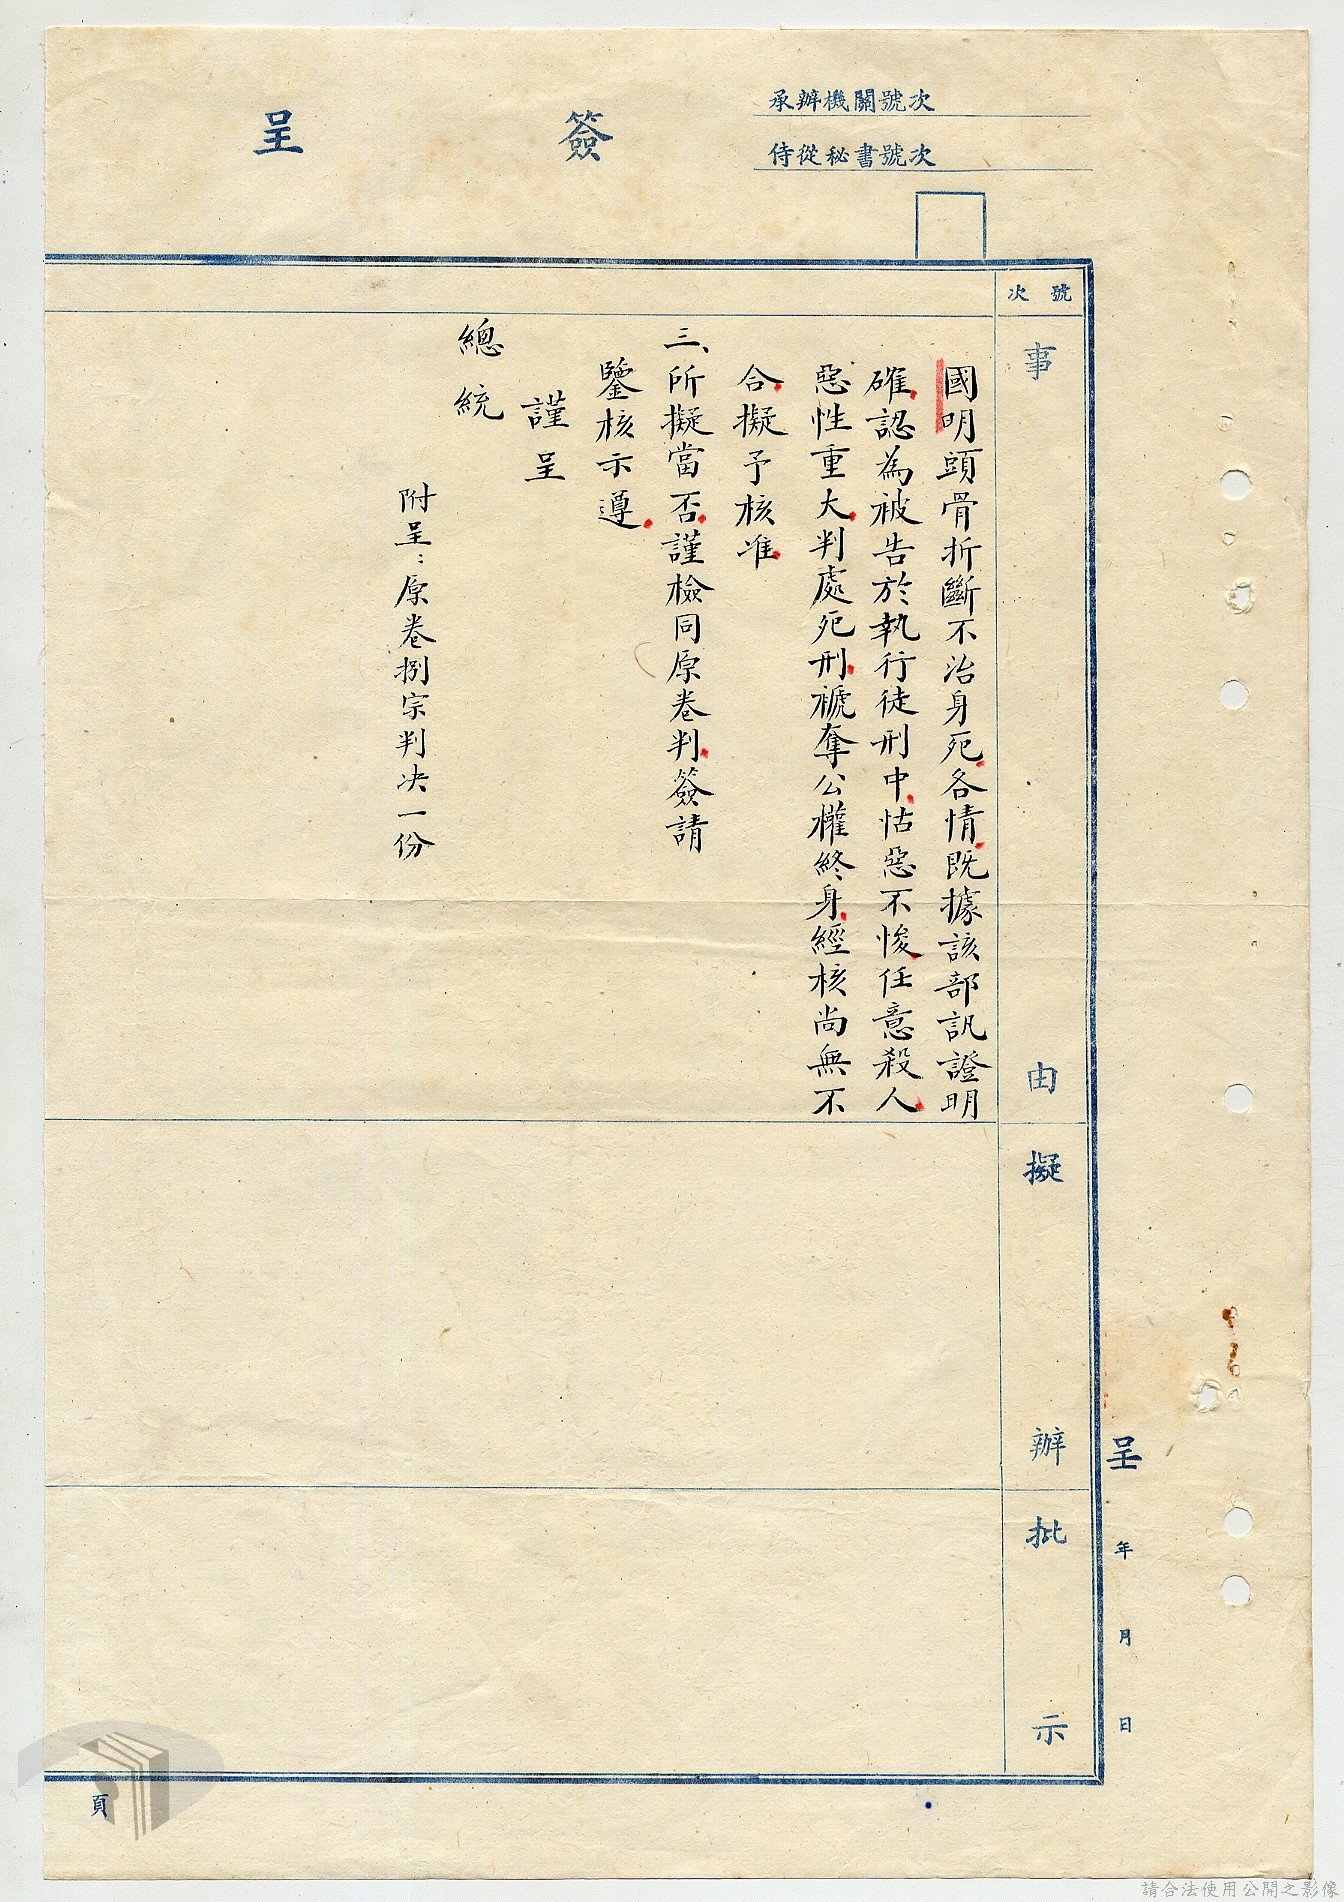 承辦機關號次
侍從秘書號次
簽呈
號次
事由
擬辦
批示
呈 年 月 日
國明頭骨折斷不治身死各情既據該部訊證明
確認為被告於執行徒刑中怙惡不悛任意殺人
惡性重大判處死刑褫奪公權終身經核尚無不
合擬予核准
三、所擬當否謹檢同原卷判簽請
鑒核示遵
謹呈
總統
附呈：原卷捌宗判决一份
頁
請合法使用公開之影像